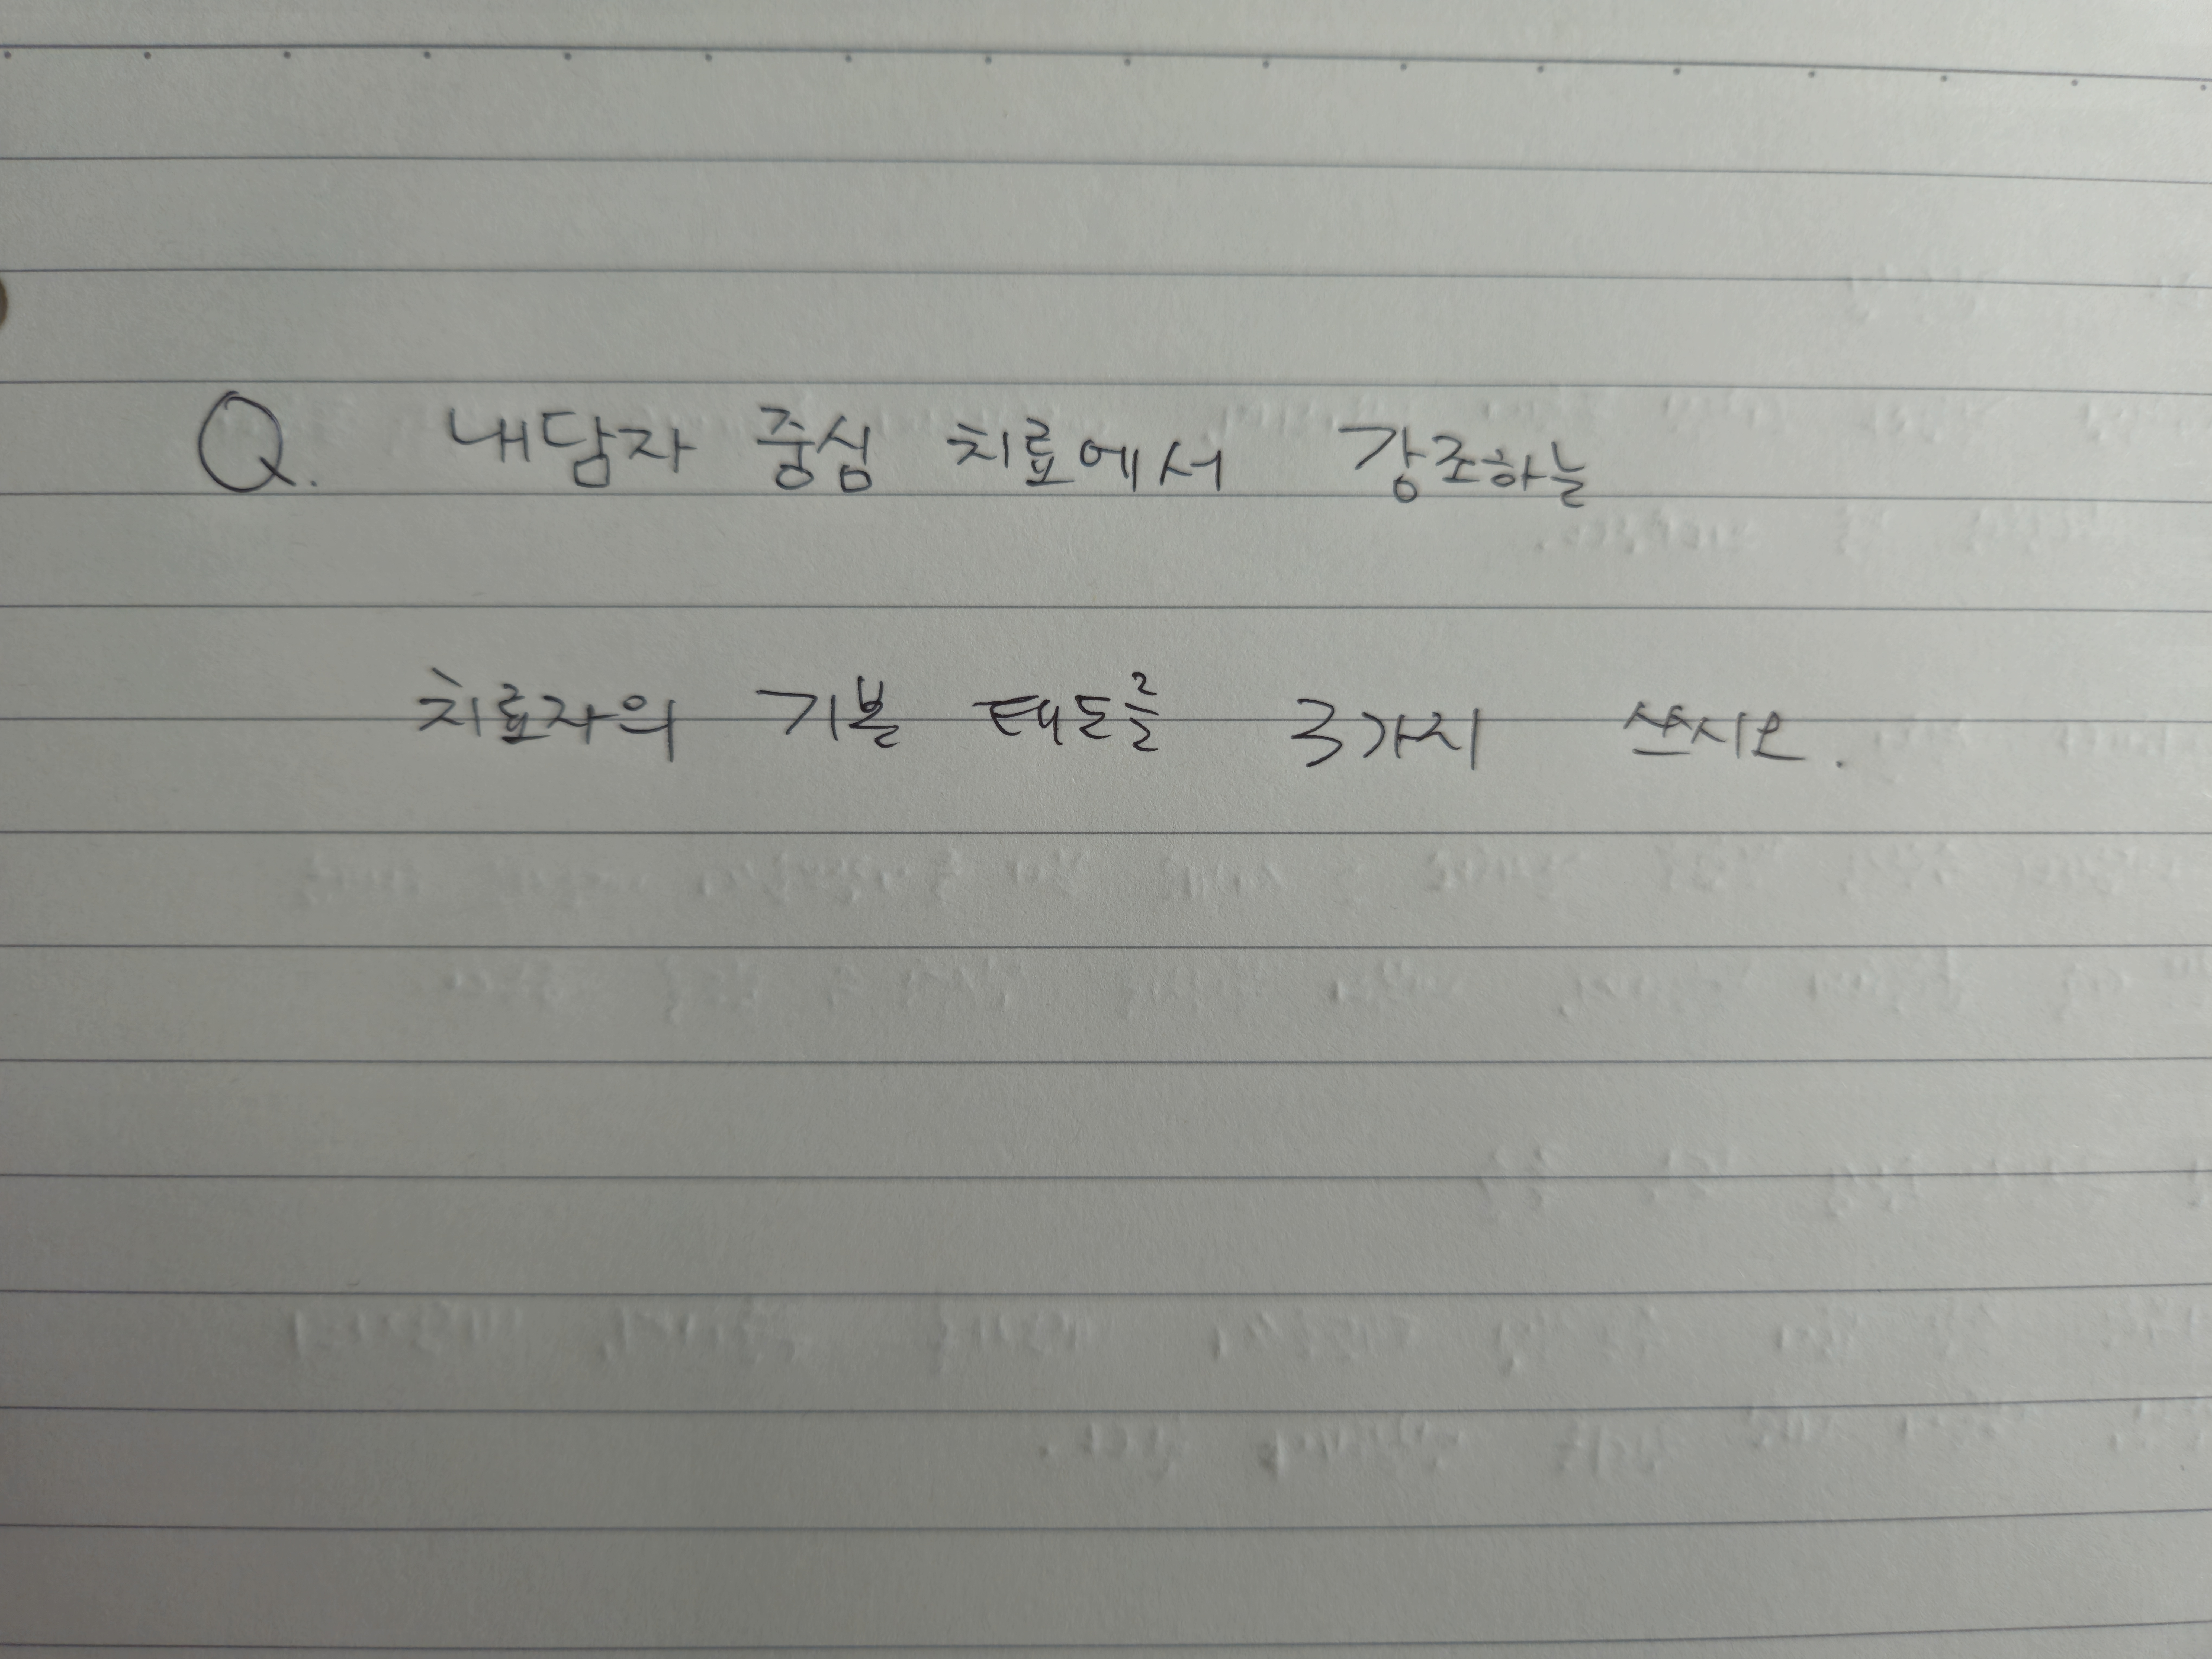 Q. 내담자 중심 치료에서 강조하는
치료자의 기본 태도를 3가지 쓰시오.